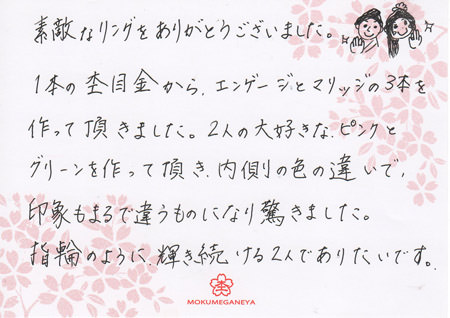 素敵なリングをありがとうございました。
1本の杢目金から、エンゲージとマリッジの3本を
作って頂きました。2人の大好きな、ピンクと
グリーンを作って頂き、内側の色の違いで、
印象もまるで違うものになり驚きました。
指輪のように、輝き続ける2人でありたいです。
MOKUMEGANEYA